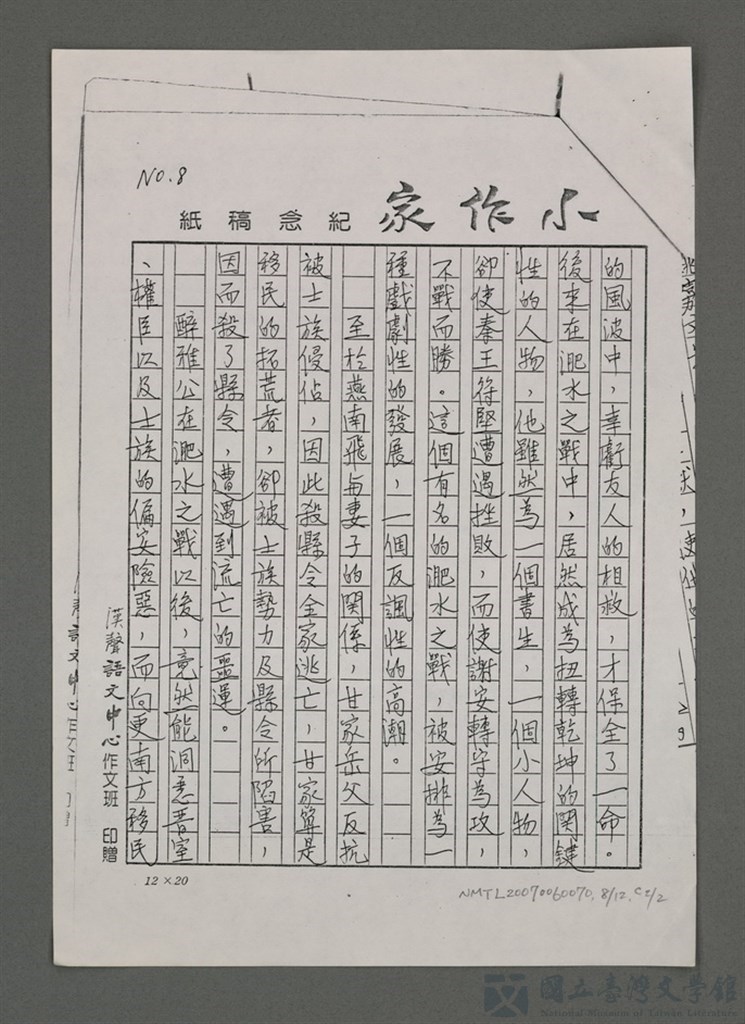 NO.8
小作家
紀念稿紙
的風波中，幸虧友人的相救，才保全了一命。
後來在淝水之戰中，居然成為扭轉乾坤的関鍵
性的人物，他雖然為一個書生，一個小人物，
卻使秦王符堅遭遇挫敗，而使謝安轉守為攻，
不戰而勝。這個有名的淝水之戰，被安排為一
種戲劇性的發展，一個反諷性的高潮。
至於燕南飛與妻子的関係，甘家岳父反抗
被士族侵佔，因此殺縣令全家逃亡，甘家算是
移民的拓荒者，卻被士族勢力及縣令所陷害，
因而殺了縣令，遭遇到流亡的噩運。
醉雅公在淝水之戰以後，竟然能洞悉晉室
、權臣以及士族的偏安險惡，而向更南方移民
漢聲語文中心作文班 印贈
12×20
NMTL20070060070. 8/12. C2/2
國立臺灣文學館
National Museum of Taiwan Literature